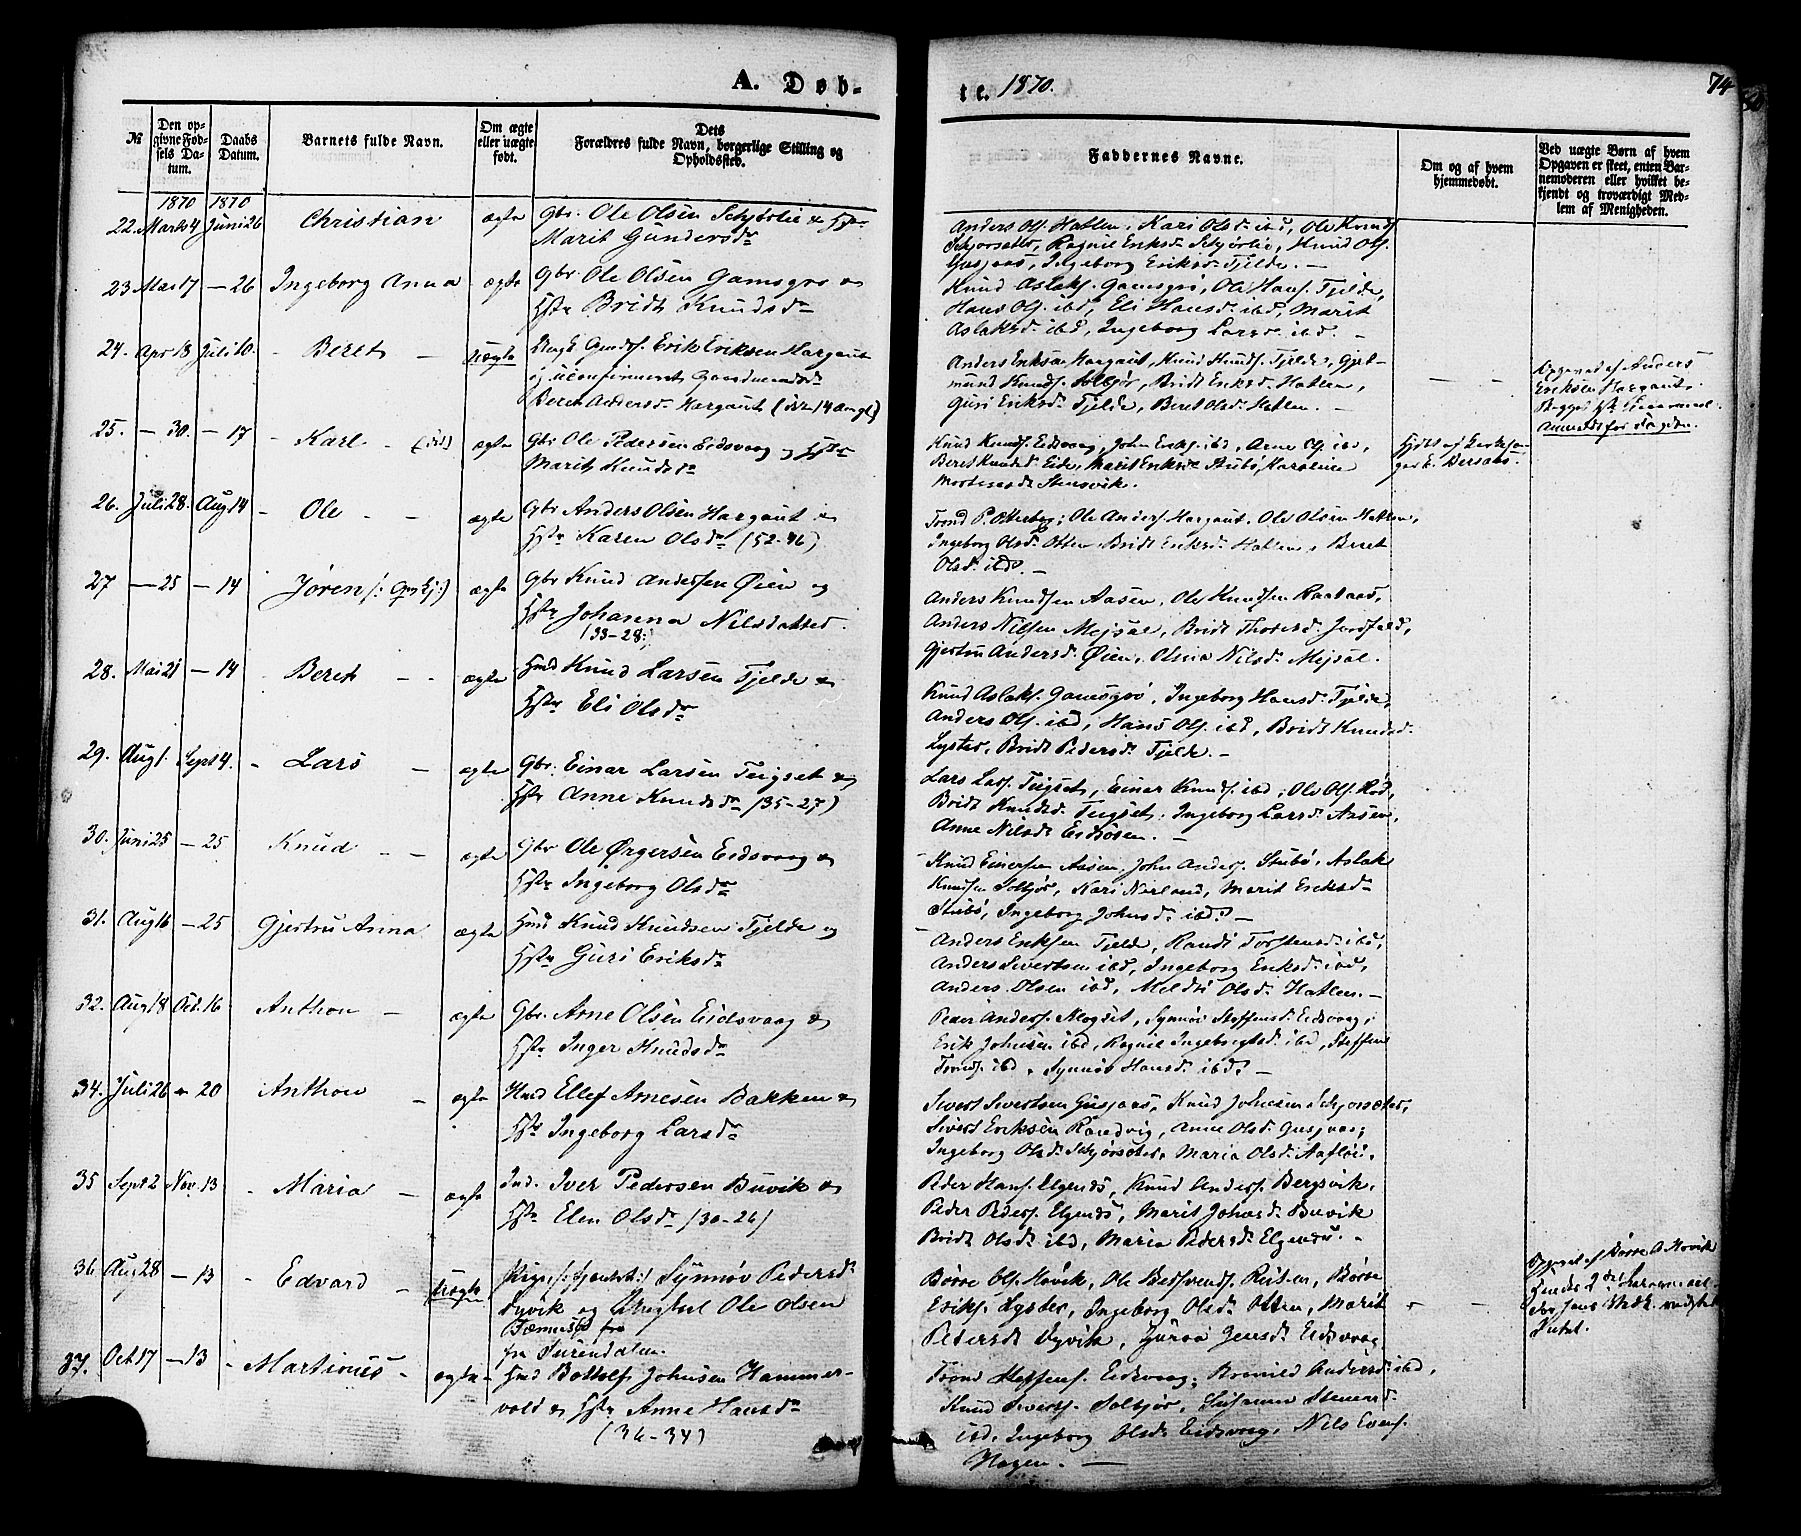 A. Døb-
te. 1870.
74
№
Den opgivne Fødsels Datum.
Daabs Datum.
Barnets fulde Navn.
Om ægte eller uægte født.
Dets Forældres fulde Navn, borgerlige Stilling og Opholdssted.
Faddernes Navne.
Om og af hvem hjemmedøbt.
Ved uægte Børn af hvem Opgaven er skeet, enten Barnemoderen eller hvilket bekjendt og troværdigt Medlem af Menigheden.
1870 1870
22. Marts 4 Juni 26 Christian ægte Gbr. Ole Olsen
Marit Gundersdr
Anders Ols. Hatlen, Kari Olsd. ibd, Ole Knuds.
Ragnil Eriksd. Knud Ols.
Ingeborg Eriksd. Tjelde. —
23 Mai 17 — 26 Ingeborg Anna ægte Gbr. Ole Olsen Gamsgrø &
Hstr Bridt Knudsdr
Knud Aslaks. Gamsgrø, Ole Hans. Tjelde,
Hans Ols. ibd, Eli Hansd. ibd, Marit
Aslaksd. ibd, Ingeborg Larsd. ibd. —
24. Apr 18 Juli 10. - Beret — uægte Erik Eriksen Hargaut
og uconfirmeret
Beret Andersd. Hargaut
Anders Eriksen Hargaut, Knud Knuds. Tjelde, Gjel-
mund Knuds. Solbjør, Bridt Eriksd. Hatlen,
Guri Eriksd. Tjelde, Beret Olsd. Hatlen. —
Opgivet af Anders
Eriksen Hargaut.
25. — 30. — 17 - Karl - ægte Gbr Ole Pedersen Eidsvaag og Hstr
Marit Knudsdr
Knud Knuds. Eidsvaag, John Eriks. ibd, Arne Ols. ibd,
Beret Knudsd. Eide, Marit Eriksd. Stubø, Karoline
Stensvik.
26. Juli 28. Aug 14 - Ole - - ægte Gbr Anders Olsen Hargaut &
Hstr Karen Olsdr (52-46)
Trond P. Otterbeg, Ole Anders. Hargaut, Ole Olsen Hatlen,
Ingeborg Olsd. Otten, Bridt Eriksd. Hatlen, Beret
Olsd. ibd. —
27 — 25 — 14 Jøren ægte Gbr Knud Andersen Øien og
Hstr Johanna Nilsdatter.
(33-28.)
Anders Knudsen Aasen, Ole Knudsen
Anders Nilsen Mejsal, Bridt
Gjertru Andersd. Øien, Olina Nilsd. Mejsal.
28. Mai 21 — 14 - Beret - - ægte Hmd Knud Larsen Tjelde &
Hstr Eli Olsdr
Knud Aslaks. Gamsgrø, Ingeborg Hansd. Tjelde,
Anders Ols. ibd, Hans Ols. ibd, Bridt Knudsd.
Lyster, Bridt Pedersd. Tjelde. —
29. Aug 1. Sept 4. - Lars — ægte Gbr. Einar Larsen Teigset &
Hstr Anne Knudsdr (35-27)
Lars Lars. Teigset, Einar Knuds. ibd, Ole Ols. Rød,
Bridt Knudsd. Teigset, Ingeborg Larsd. Aasen,
Anne Nilsd. —
30. Juni 25 — 25 Knud - - ægte Gbr Ole Ørgersen Eidsvaag &
Hstr Ingeborg Olsdr
Knud Einersen Aasen, John Anders. Stubø, Aslak
Knudsen Solbjør, Kari Norland, Marit Eriksd.
Stubø, Ingeborg Johnsd. ibd. —
31. Aug 16 — 25 Gjertru Anna ægte Hmd Knud Knudsen Tjelde og
Hstr Guri Eriksdr
Anders Eriksen Tjelde, Randi Torstensd. ibd,
Anders Sivertsen ibd, Ingeborg Eriksd. ibd,
Anders Olsen ibd, Meldti Olsd. Hatlen. —
32. Aug 18 Oct. 16 Anthon — ægte Gbr. Arne Olsen Eidsvaag &
Hstr Inger Knudsdr
Peder Anders. Mogset, Synnøv Steffensd. Eidsvaag,
Erik Johnsen ibd, Ragnil Ingebrigtsd. ibd, Steffen
Tronds. ibd, Synnøv Hansd. ibd. —
34. Juli 26 - 20 Anthon — ægte Hmd Ellef Arnesen Bakken &
Hstr Ingeborg Larsdr
Sivert Sivertsen Gusjaas, Knud Johnsen
Sivert Eriksen Randvig, Anne Olsd. Gusjaas,
Ingeborg Olsd. Maria Olsd.
35 Sept 2 Nov. 13 - Maria — ægte Ind. Iver Pedersen Buvik &
Hstr Elen Olsdr (30-26)
Peder Hans. Elgenæs, Knud Anders. Bergsvik,
Peder Peders. Elgenæs, Marit Johnsd. Buvik
Bridt Olsd. ibd, Maria Pedersd. Elgenæs. -
36. Aug 28 — 13 - Edvard — uægte Synnøv Pedersdr
Syvik og Ungkal Ole Olsen
fra Surendalen.
Børre Ols. Hovik, Ole Reiten, Børre
Eriks. Lyster, Ingeborg Olsd. Otten, Marit
Pedersd. Syvik, Jensd. Eidsvaag
Opgivet af Børre O. Hovik
37. Oct 17 — 13 - Martinus - ægte - Hmd Bottolf Johnsen Hammer-
vold & Hstr Anne Hansdr
(36-34)
Trond Steffens. Eidsvaag, Andersd. ibd,
Knud Siverts. Solbjør, Susanna
ibd, Ingeborg Olsd. Eidsvaag, Nils Evens.
Hagen. —